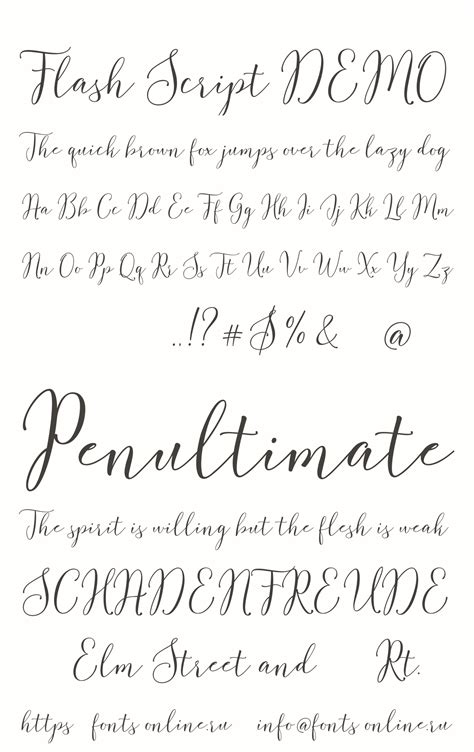 Flash Script DEMO
The quick brown fox jumps over the lazy dog
Aa Bb Cc Dd Ee Ff Gg Hh Ii Jj Kk Ll Mm
Nn Oo Pp Qq Rr Ss Tt Uu Vv Ww Xx Yy Zz
..!? # $ % & @
Penultimate
The spirit is willing but the flesh is weak
SCHADENFREUDE
Elm Street and Rt.
https fonts online.ru info@fonts online.ru